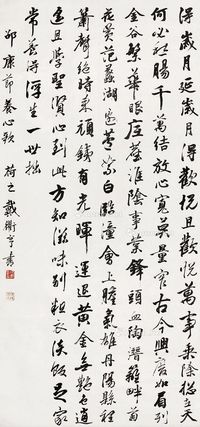 得歲月延歲月得歡悅且歡悅萬事乘除總在天
何必愁腸千萬結放心寬莫量窄古今興廢如眉列
金谷繁華眼底塵淮陰事業鋒頭血陶潛籬畔菊
花黃范蠡湖邊蘆絮白臨潼會上膽氣雄丹陽縣裡
簫聲絕時來頑鐵有光暉運退黃金無艷色逍
遙且學聖賢心到此方知滋味別粗衣淡飯足家
常養得浮生一世拙
邵康節養心歌 荷之戴衢亨書